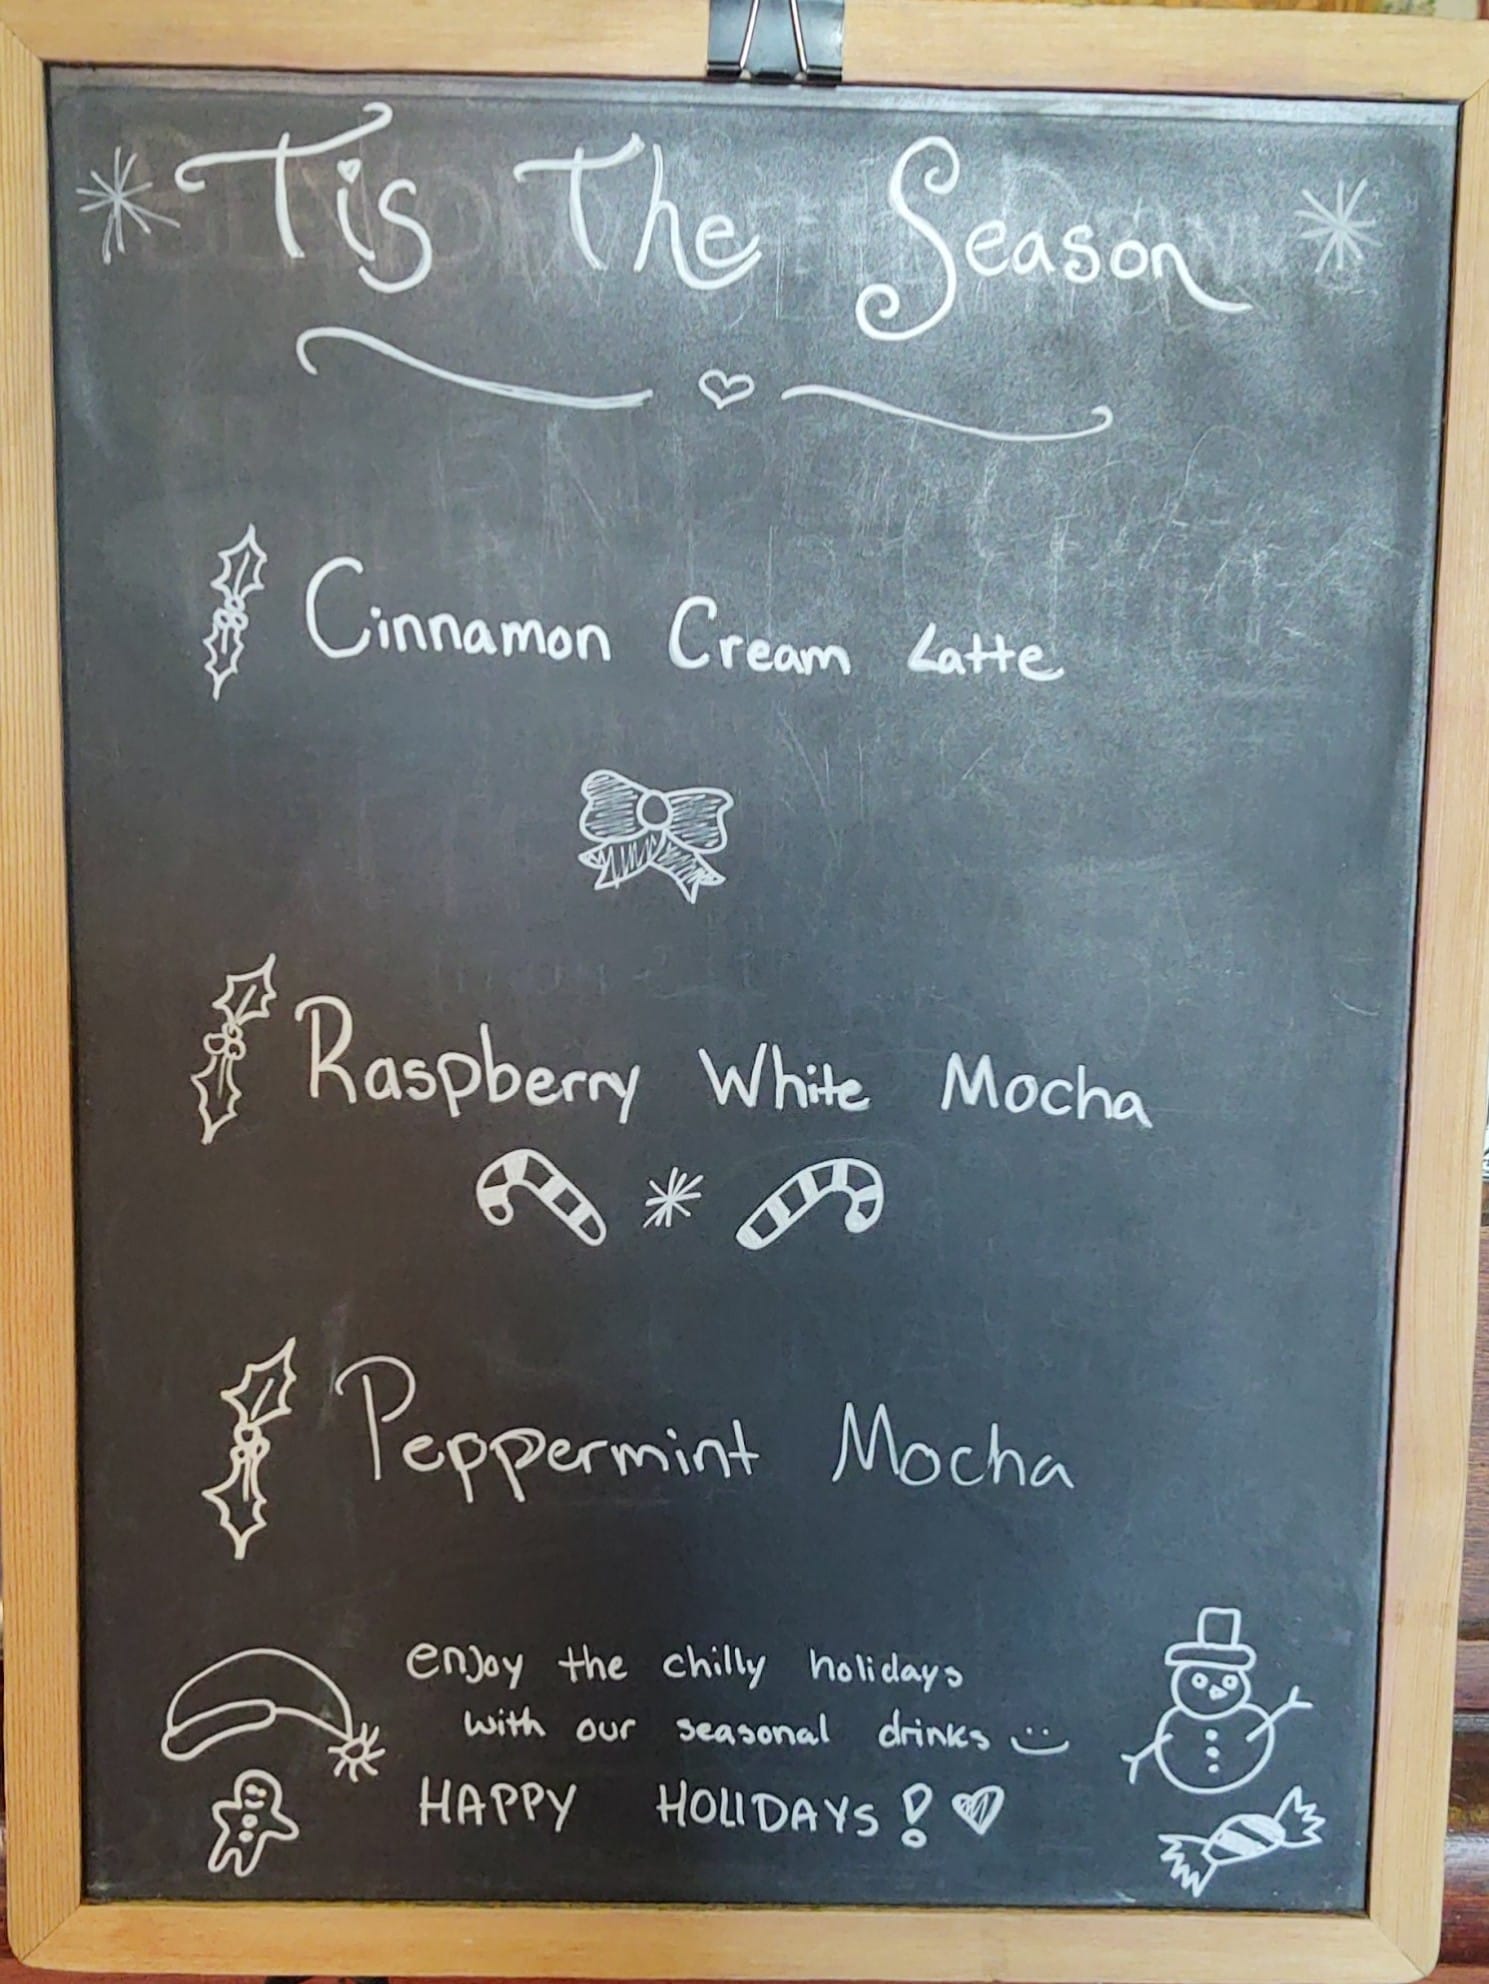 Tis The Season
Cinnamon Cream Latte
Raspberry White Mocha
Peppermint Mocha
enjoy the chilly holidays
with our seasonal drinks :)
HAPPY HOLIDAYS!